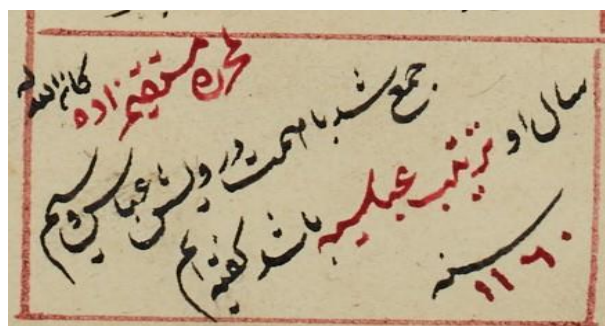 لمحرره مستقیم زاده کان الله له
جمع شد با همت درویش عباس وسیم
سال او ترتیب عباسیه باشد گفته ام
سنه ١١٦٠